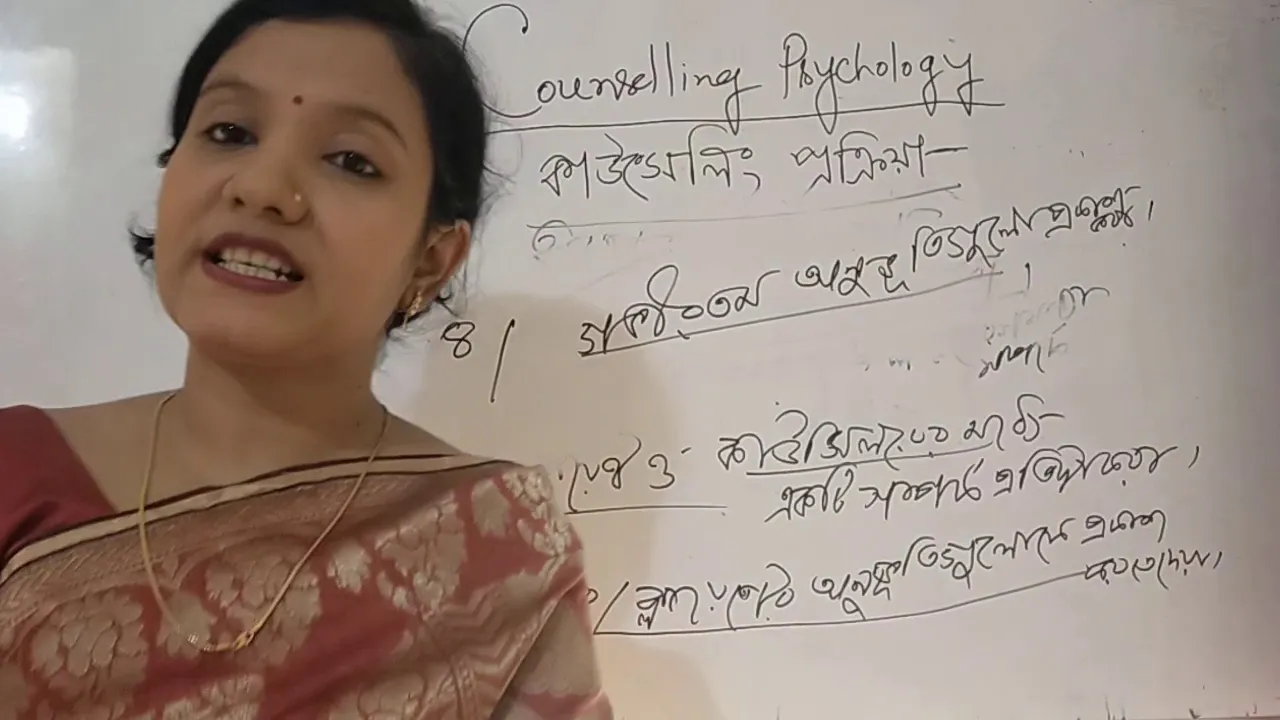 Counselling Psychology
কাউন্সেলিং প্রক্রিয়া-
৪/ গভীরতম অনুভূতিগুলো প্রকাশ করা।
ও কাউন্সিলরের মধ্যে
একটি সম্পর্ক প্রতিষ্ঠা করা।
ক্লায়েন্টের অনুভূতিগুলোকে প্রকাশ
করতে দেয়া।